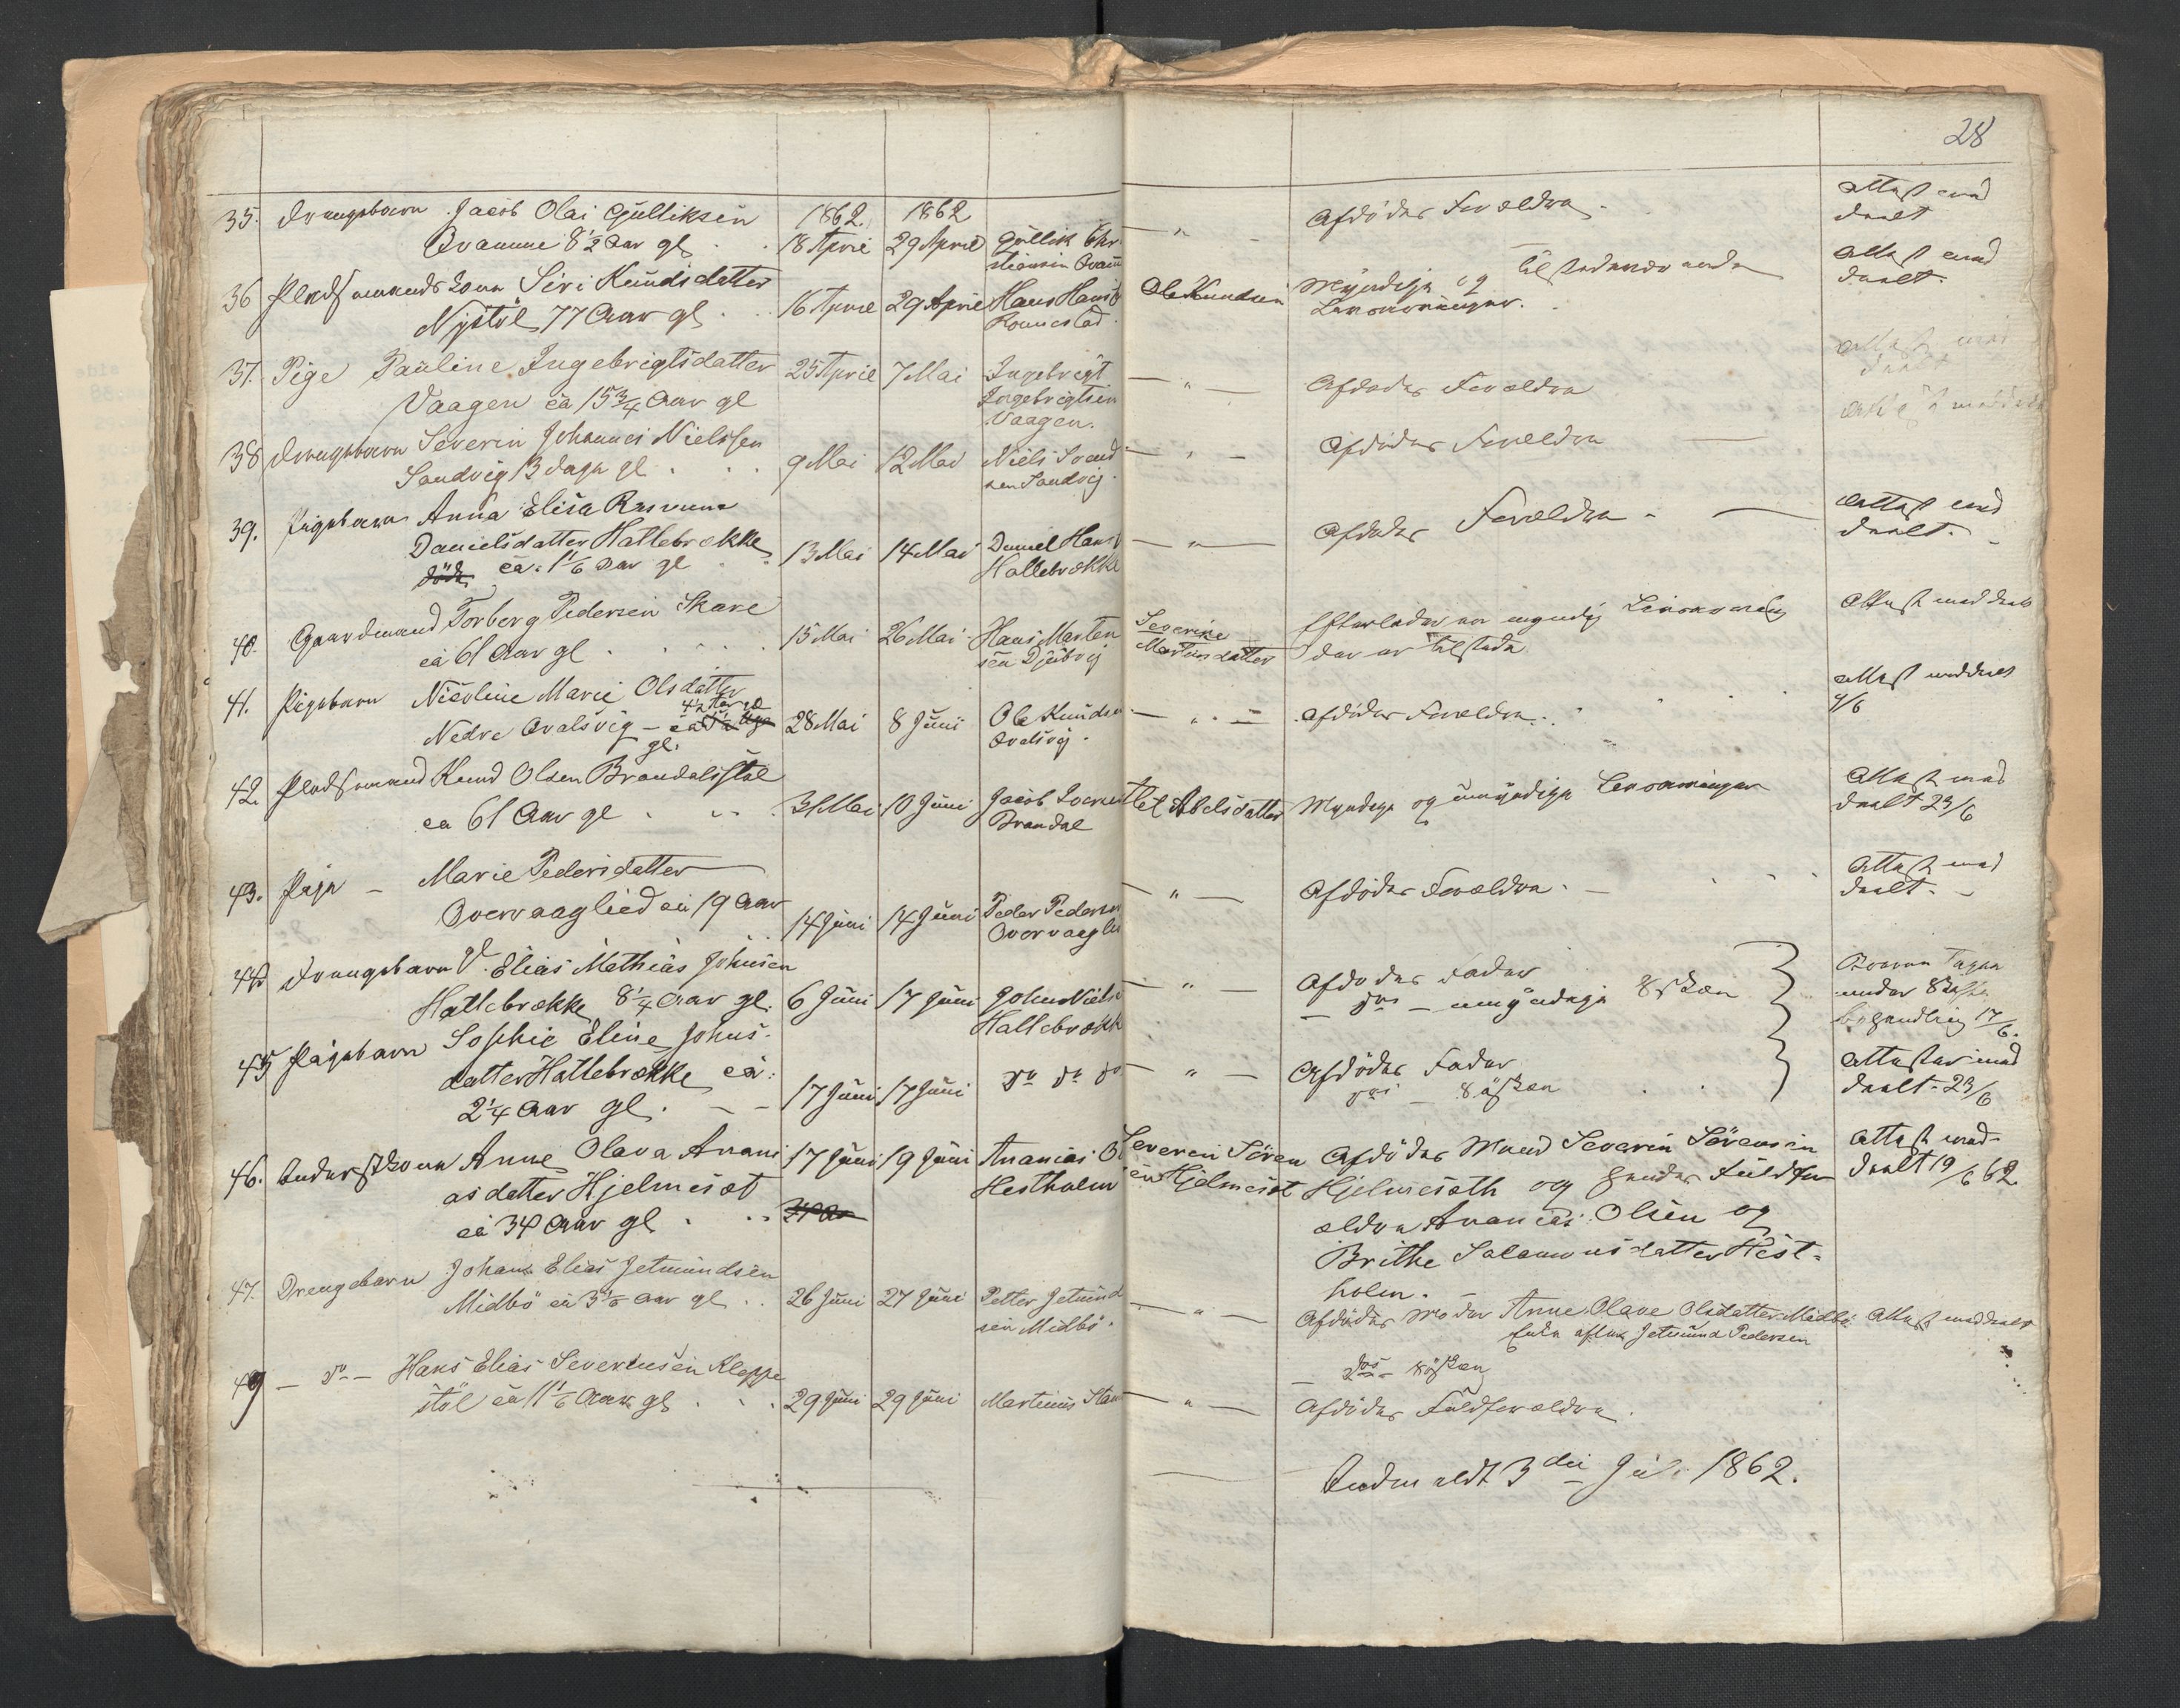 28
1862. 1862
35. Drengebarn Jacob Olai Gulliksen
Qvamme 8 1/2 Aar gl. 18 April 29 April Gullik Chri
stiansen Qvam — " — Afdødes Forældre. Attest med
deelt
36 Pladsmands Kone Siri Knudsdatter
Nystøl 77 Aar gl. 16 April 29 April Hans Hans
Rommestad. Ole Knudsen Myndige og tilstedeværende
Livsarvinger. Attest med
deelt.
37. Pige Pauline Ingebrigtsdatter
Vaagen ca 15 3/4 Aar gl 25 April 7 Mai Ingebrigt
Ingebrigtsen
Vaagen. — " — Afdødes Forældre Attest med
deelt
38 Drengebarn Severin Johannes Nielssen
Sandvig 13 dage gl. 9 Mai 12 Mai Niels Svend
sen Sandvig. — " — Afdødes Forældre —
39. Pigebarn Anna Elisa Rasmine
Danielsdatter Hatlebrække
døde ca. 1 1/6 Aar gl 13 Mai 14 Mai Daniel Hans
Hallebrække — " — Afdødes Forældre. — Attest med
deelt.
40. Gaardmand Torberg Pedersen Skare
ca 61 Aar gl. 15 Mai 26 Mai Hans Marten
sen Djubvig Severine
Martinsdatter Efterlader en myndig Livsarving
der er tilstede. Attest meddeelt
41. Pigebarn Nicoline Marie Olsdatter
Nedre Qvalsvig — ca 4 1/2 Aar gl
gl. 28 Mai 8 Juni Ole Knudsen
Qvalsvig. — " — Afdødes Forældre. Attest meddeelt
4/6
42. Pladsmand Knud Olsen Brandalsstøl
ca 61 Aar gl. 31 Mai 10 Juni Jacob
Brandal Abelsdatter Myndige og umyndige Livsarvinger Attest med
deelt 23/6
43. Pige — Marie Pedersdatter
Overvaaglied ca 19 Aar
gl. 14 Juni 14 Juni Peder Pedersen
Overvaagli — " — Afdødes Forældre. — Attest med
deelt. —
44. Drengebarn Elias Mathias Johnsen
Hatlebrække 8 1/4 Aar gl. 6 Juni 17 Juni John Niels
Hatlebrækk — " — Afdødes Fader
— Ds — umyndige Søsken
under Skifte
behandling 17/6.
45 Pigebarn Sophie Eline Johns-
datter Hatlebrække ca:
2 1/4 Aar gl. — — 17 Juni 17 Juni Do Do Do — " — Afdødes Fader
Ds — Søsken Attester med
deelt. 23/6
46. Inderstkone Anne Olava Anani
as datter Hjelmesæt
ca 34 Aar gl. 17 Juni 19 Juni Ananias O
Hestholm Severin Sören
en Hjelmesæt Afdødes Mand Severin Sörensen
Hjelmesæth og hendes Fuldfor
ældre Ananias Olsen og
Brithe Salamonsdatter Hest-
holm. — Attest med-
deelt 19/6 62.
47. Drengebarn Johan Elias Jetmundsen
Midbö ca 3 1/8 Aar gl. 26 Juni 27 Juni Petter Jetmund
sen Midbö. — " — Afdødes Moder Anne Olave Olsdatter Midbö
Enke efter Jetmund Pedersen
— Ds — Søsken Attest meddeelt
49 — Do — Hans Elias Sivertsen Kleppe
støl ca 1 1/6 Aar gl. 29 Juni 29 Juni Martinus Stav — " — Afdødes Fuldforældre.
Indmeldt 3die Juli 1862.